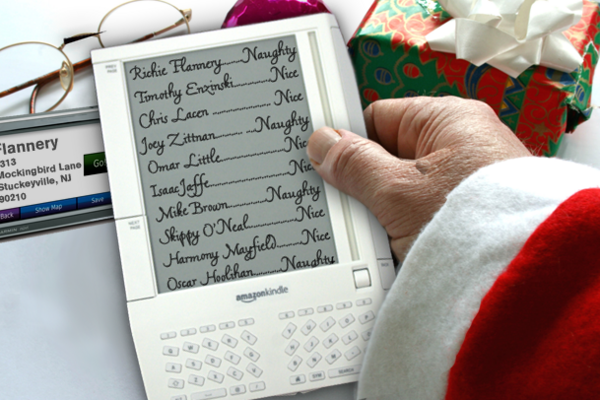 Richie Flannery......Naughty
Timothy Enzinski...........Nice
Chris Lacen ................... Nice
Joey Zittnan......... ...Naughty
Omar Little..................Nice
Isaac Jaffe....................Nice
Mike Brown............Naughty
Skippy O'Neal.............Nice
Harmony Mayfield.......Nice
Oscar Hoolihan..........Naughty
amazonkindle
Flannery
313
Mockingbird Lane
Stuckeyville, NJ
90210
Go!
Back Show Map Save
NEXT PAGE